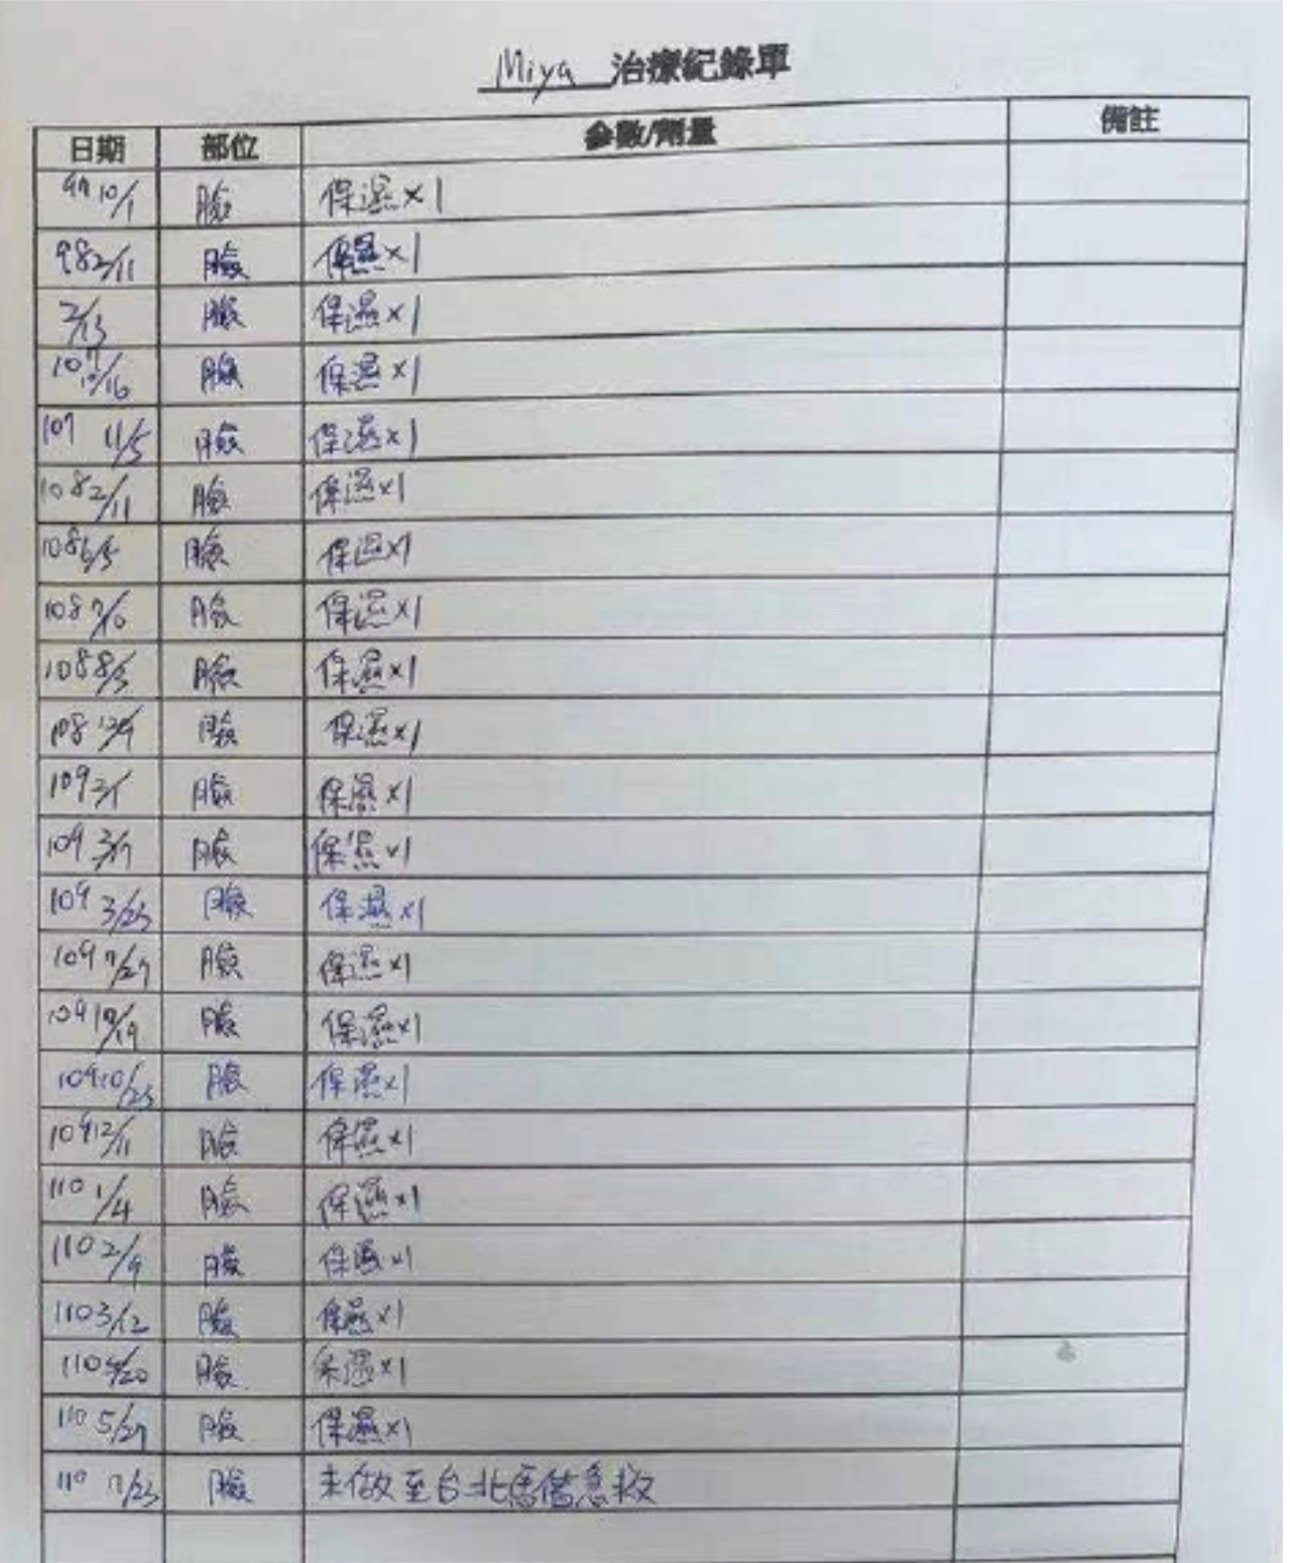 Miya 治療紀錄單
日期 部位 參數/劑量 備註
97 10/1 臉 保濕×1
98 2/11 臉 保濕×1
2/13 臉 保濕×1
107 10/16 臉 保濕×1
107 11/5 臉 保濕×1
108 2/11 臉 保濕×1
108 臉 保濕×1
108 7/10 臉 保濕×1
108 8/5 臉 保濕×1
108 臉 保濕×1
109 2/1 臉 保濕×1
109 臉 保濕×1
109 3/23 臉 保濕×1
109 7/27 臉 保濕×1
109 10/19 臉 保濕×1
109 10/23 臉 保濕×1
109 12/11 臉 保濕×1
110 1/4 臉 保濕×1
110 2/9 臉 保濕×1
110 3/12 臉 保濕×1
110 4/20 臉 保濕×1
110 5/27 臉 保濕×1
110 7/23 臉 未做至台北馬偕急救